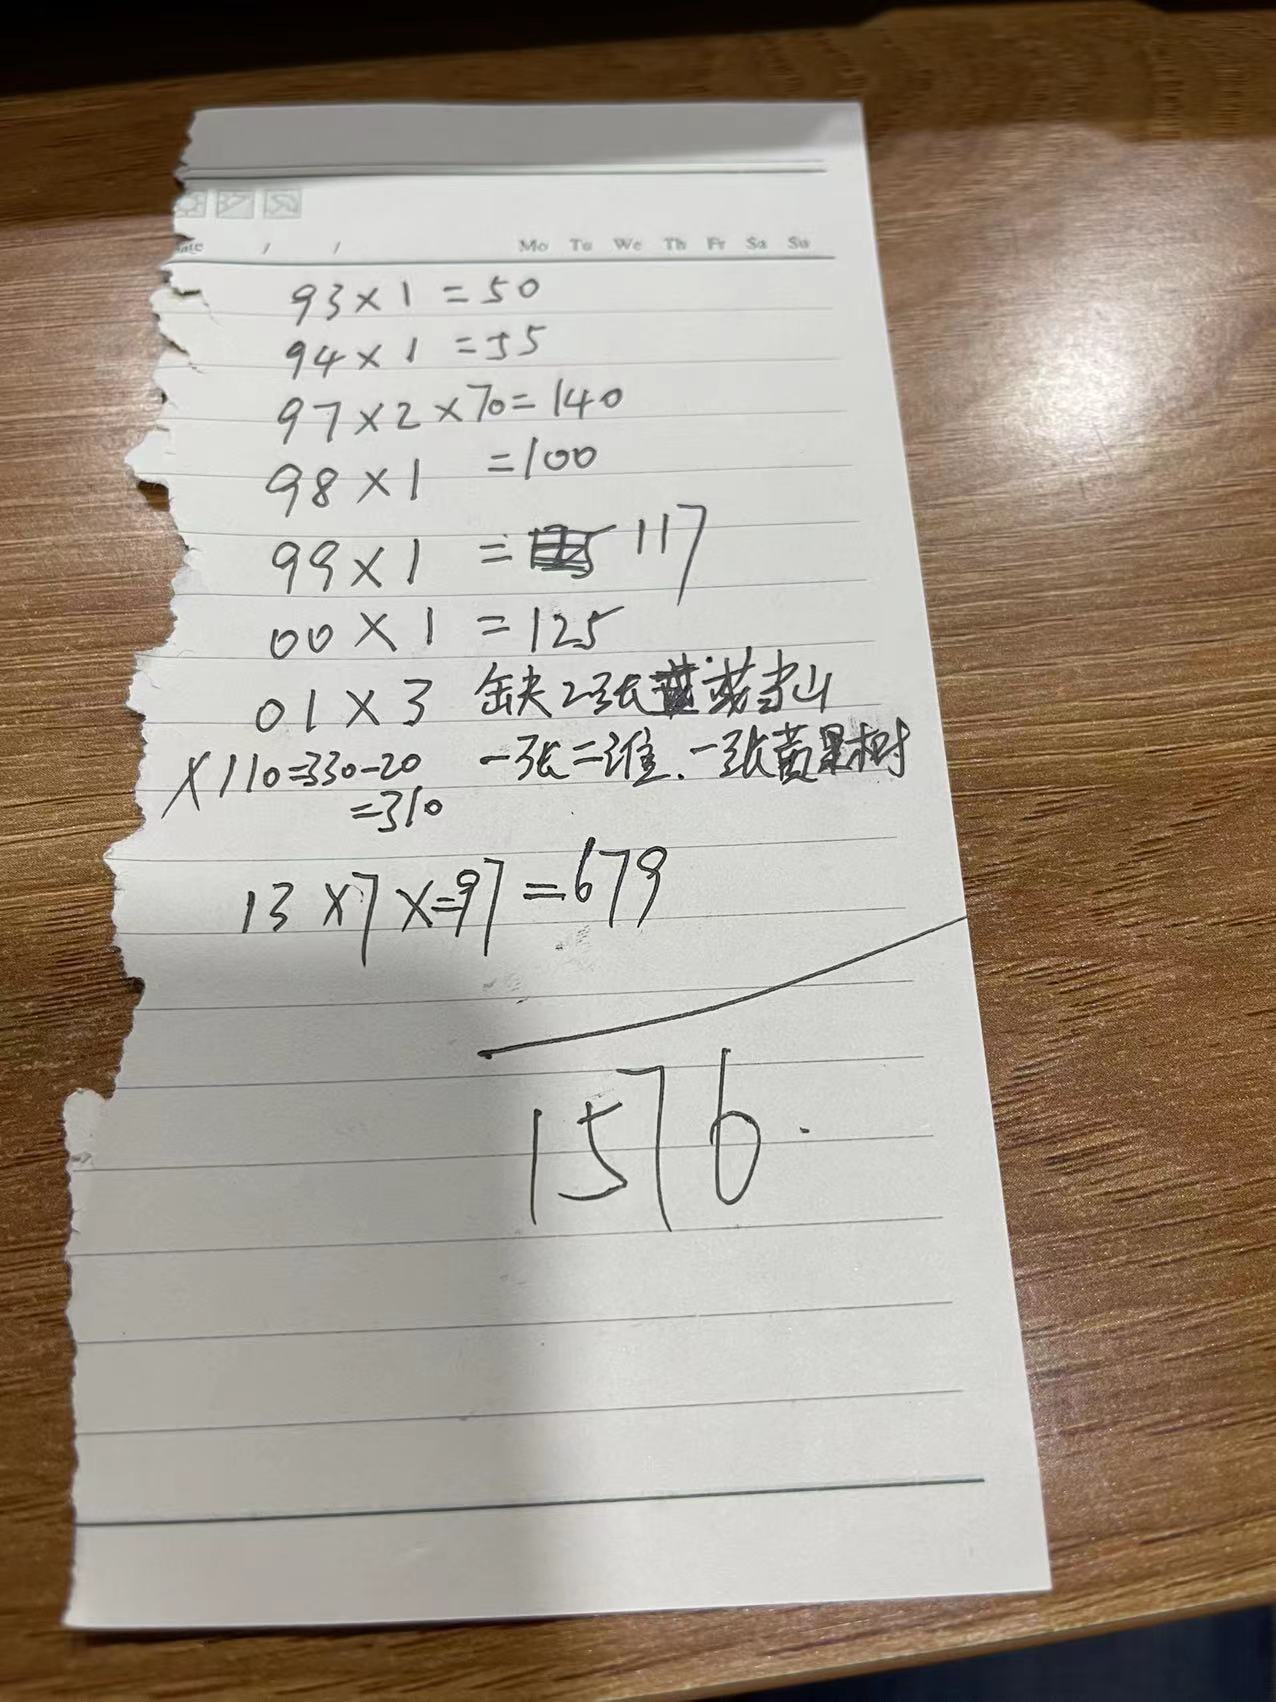 ate / / Mo Tu We Th Fr Sa Su
93×1 =50
94×1 =55
97×2×70=140
98×1 =100
99×1 = 117
00×1 =125
01×3 缺2张 武当山
×110=330-20 一张二滩、一张黄果树
=310
13×7×=97=679
1576.